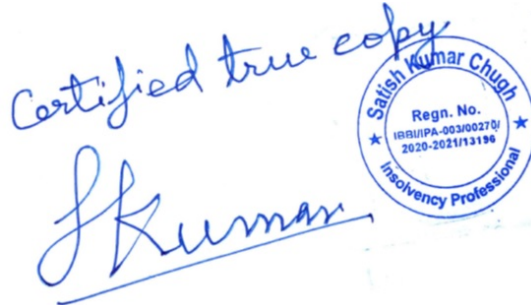 Certified true copy
Satish Kumar Chugh
Regn. No.
IBBI/IPA-003/00270/
2020-2021/13196
Insolvency Professional
SKumar